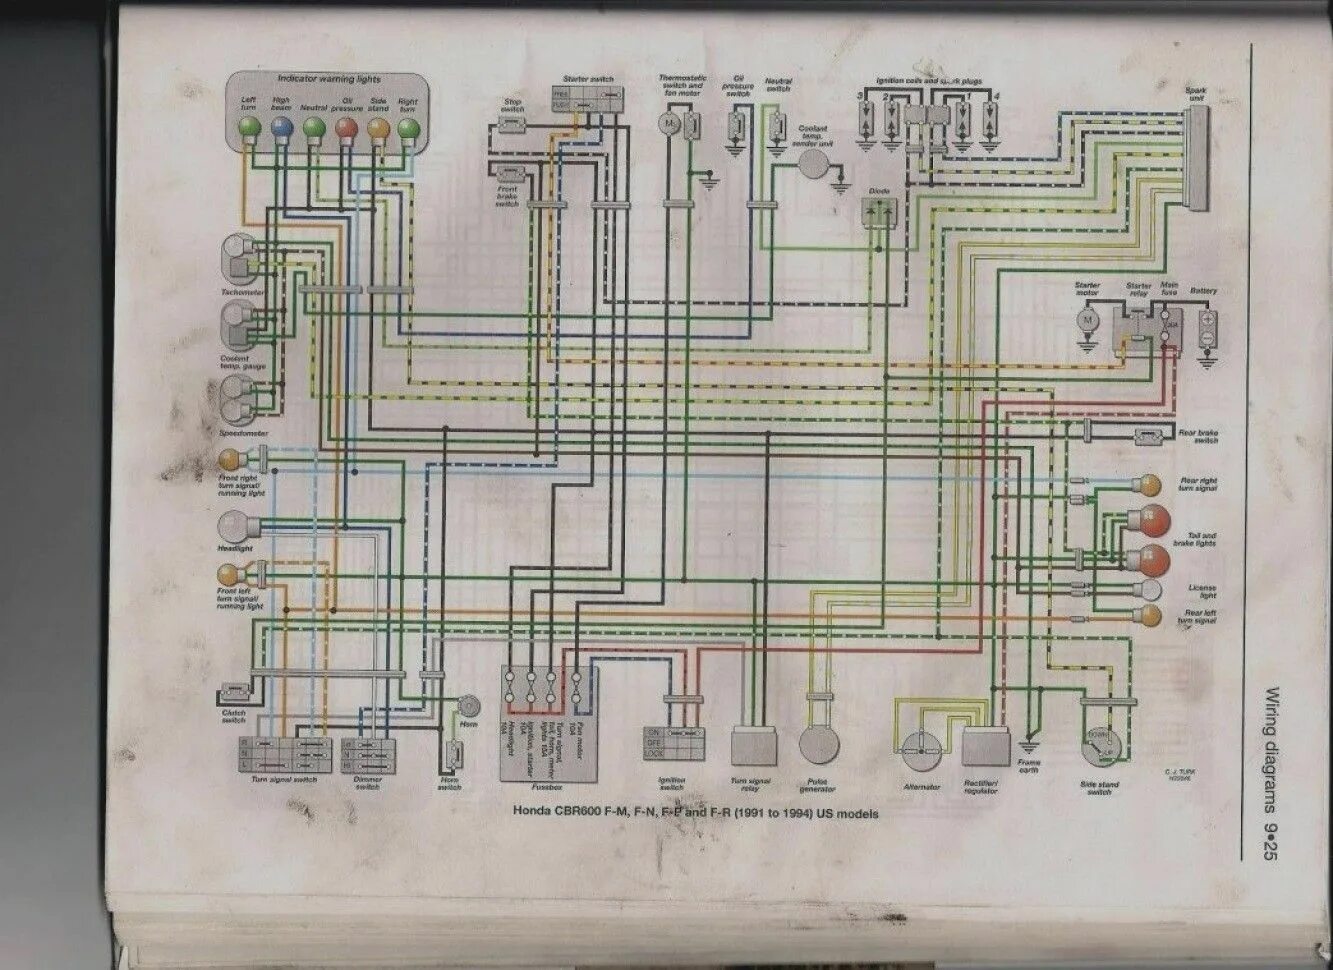 Indicator warning lights
Left
turn
High
beam
Neutral
Oil
pressure
Side
stand
Right
turn
Starter switch
FREE
PUSH
Stop
switch
Front
brake
switch
Thermostatic
switch and
fan motor
M
Oil
pressure
switch
Neutral
switch
Coolant
temp.
sender unit
Ignition coils and spark plugs
3
2
1
4
Diode
Spark
unit
Tachometer
Coolant
temp. gauge
Speedometer
Starter
motor
M
Starter
relay
Main
fuse
30A
Battery
Rear brake
switch
Front right
turn signal/
running light
Headlight
Front left
turn signal/
running light
Rear right
turn signal
Tail and
brake lights
License
light
Rear left
turn signal
Clutch
switch
R
N
L
Turn signal switch
Dimmer
switch
Horn
Horn
switch
Headlight
10A
Ignition, starter
10A
Turn signal,
tail, horn, meter
lights 10A
Fan motor
10A
Fusebox
ON
OFF
LOCK
Ignition
switch
Turn signal
relay
Pulse
generator
Alternator
Rectifier/
regulator
Frame
earth
DOWN
UP
Side stand
switch
C. J. TURK
Honda CBR600 F-M, F-N, F-P and F-R (1991 to 1994) US models
Wiring diagrams 9•25